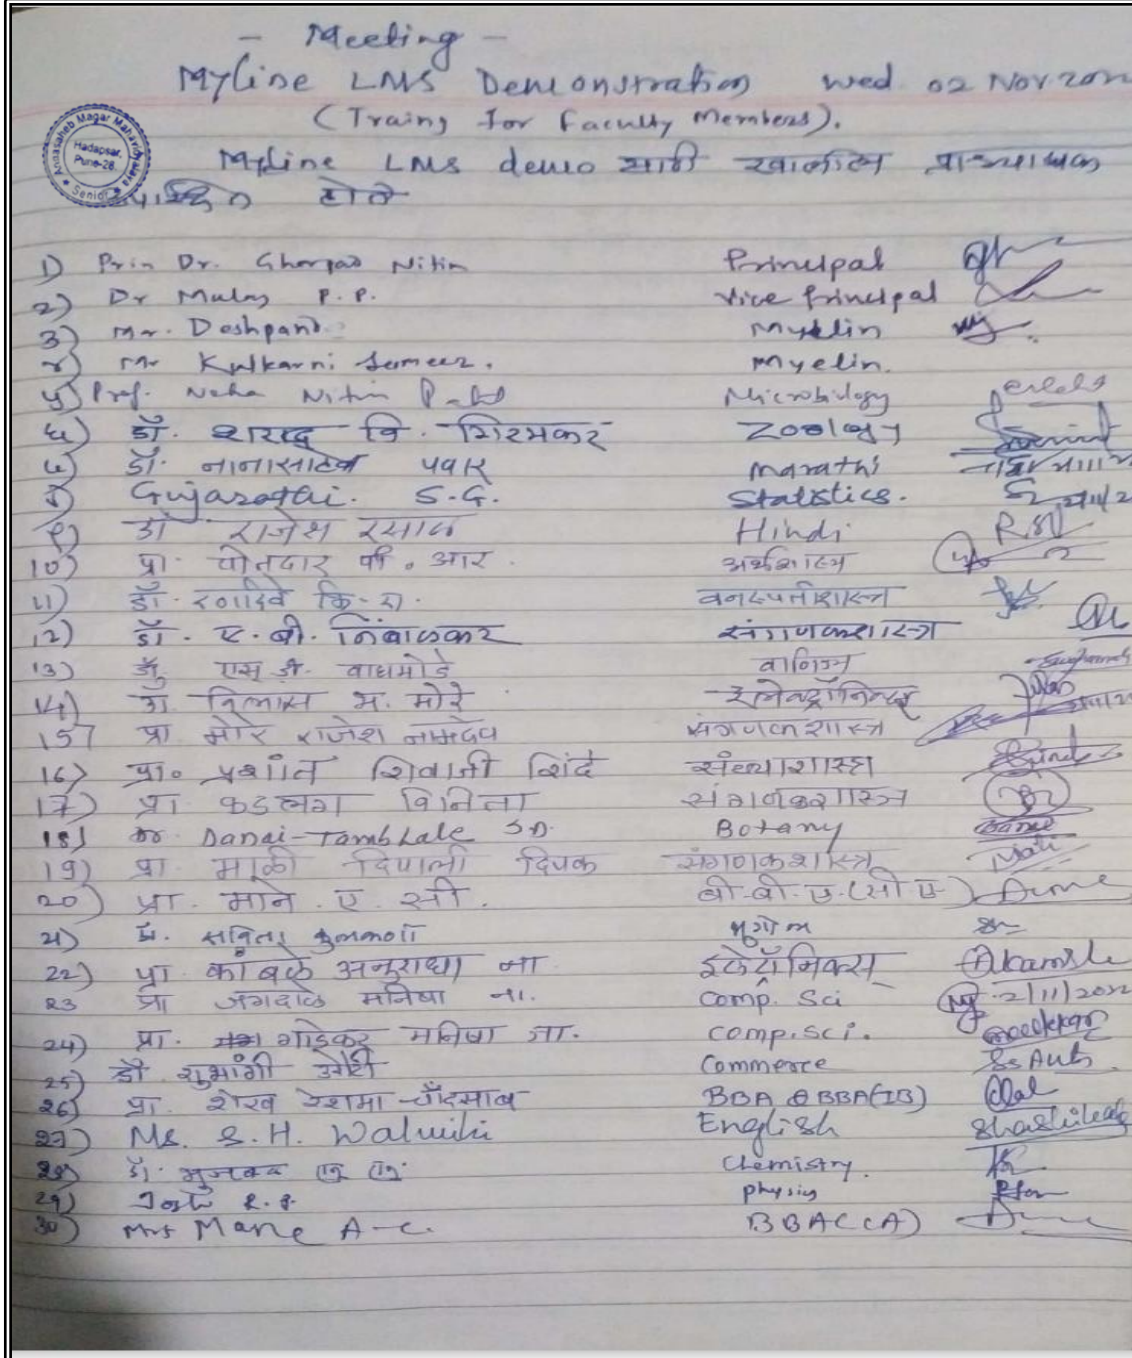 - Meeting -
Myline LMS Demonstration Wed. 02 Nov 2022
(Traing for Faculty Members).
Annasaheb Magar Mahavidyalaya
Hadapsar,
Pune-28.
Senior
Myline LMS demo साठी खालील प्राध्यापक
होते
1) Prin Dr. Ghorpad Nitin Principal
2) Dr Mulay P. P. Vice Principal
3) Mr. Deshpand
४) Mr Kulkarni Sameer. Myelin.
५) Prof. Neha Nitin Microbiology
६) डॉ. शरद वि. गिरमकर Zoology
डॉ. नानासाहेब पवार Marathi
Gujarathi. S.G. Statistics.
९) डॉ राजेश रसाळ Hindi
10) प्रा. पोतदार व्ही. आर. अर्थशास्त्र
11) डॉ. रणदिवे वनस्पतीशास्त्र
12) डॉ. ए. बी. निंबाळकर संगणकशास्त्र
13) एस. डी. वाघमोडे वाणिज्य
14) डॉ विलास भ. मोरे इलेक्ट्रॉनिक्स
15) प्रा मोरे राजेश नामदेव संगणकशास्त्र
16) प्रा. प्रशांत शिवाजी शिंदे संख्याशास्त्र
17) प्रा कडलग विनिता संगणकशास्त्र
18) Dr. Danai-Tambhale S.D. Botany
19) प्रा. माळी दिपाली दिपक संगणकशास्त्र
20) प्रा. माने. ए. सी. बी.बी.ए.(सी ए)
21) सविता भूगोल
22) प्रा कांबळे अनुराधा ना. इलेक्ट्रॉनिक्स Akamble
23 प्रा जगदाळे मनिषा ना. Comp. Sci 2/11/2022
24) प्रा. गाडेकर मनिषा जा. Comp. Sci.
25) डॉ शुभांगी औटी Commerce SsAuti
26) प्रा. शेख रेशमा चाँदसाब BBA & BBA(IB)
27) Ms. S. H. Walmiki English
28) डॉ. भुजबळ Chemistry.
29) Joshi R. P. Physics
30) Mrs Mane A-C. BBA(CA)